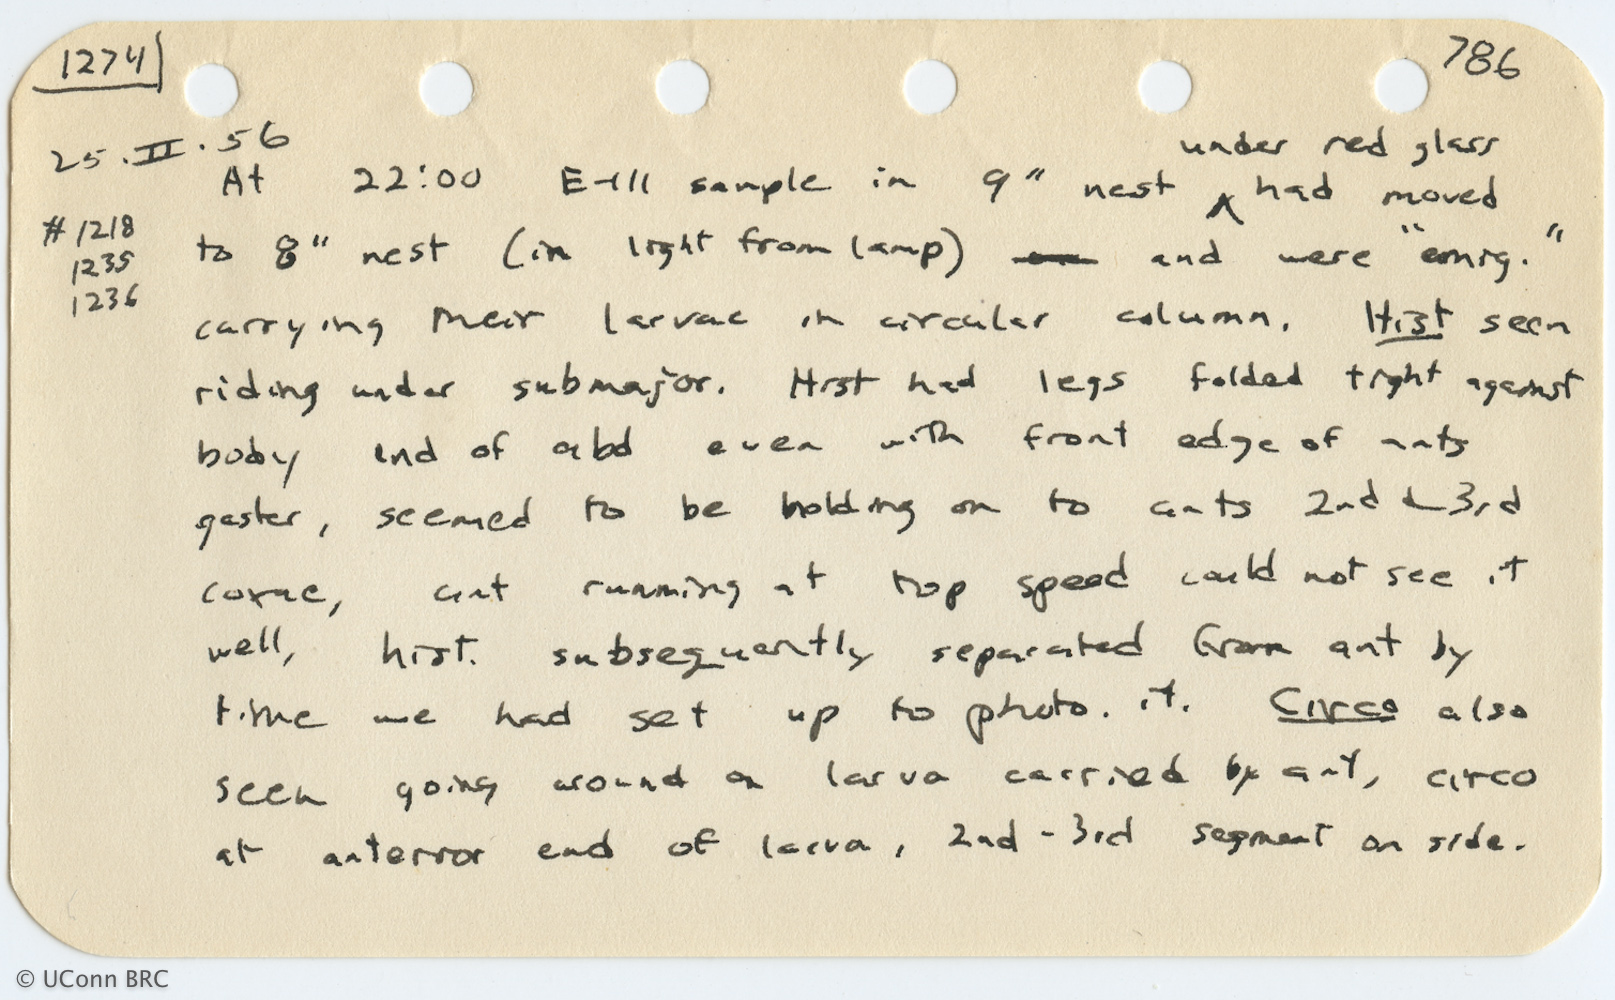 1274
786
25.II.56
under red glass
At 22:00 E-111 sample in 9" nest ^ had moved
#1218
1235
1236
to 8" nest (in light from lamp) and were "emig."
carrying their larvae in circular column. Hist seen
riding under submajor. Hist had legs folded tight against
body end of abd even with front edge of ants
gaster, seemed to be holding on to ants 2nd & 3rd
coxae, ant running at top speed could not see it
well, hist. subsequently separated from ant by
time we had set up to photo. it. Circo also
seen going around on larva carried by ant, circo
at anterior end of larva, 2nd-3rd segment on side.
© UConn BRC